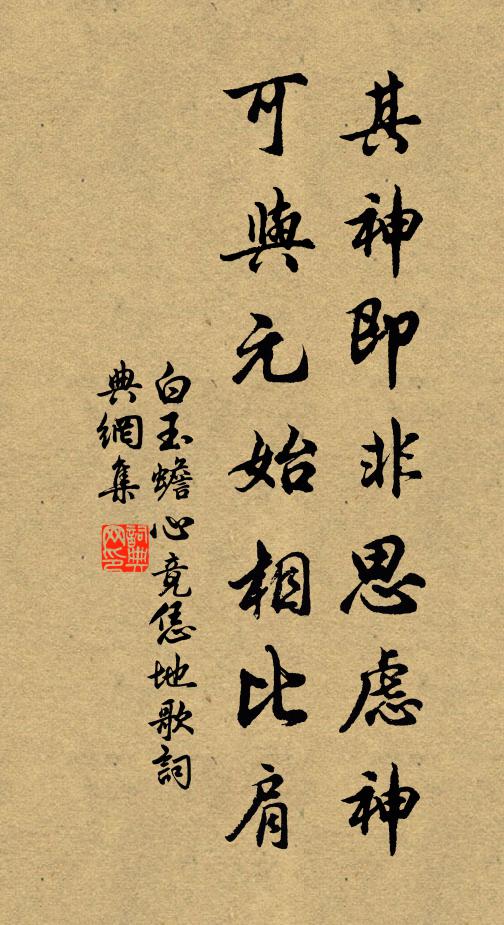 其神即非思慮神
可與元始相比肩
白玉蟾心竟恁地歌詞
典網集
詞典
网印